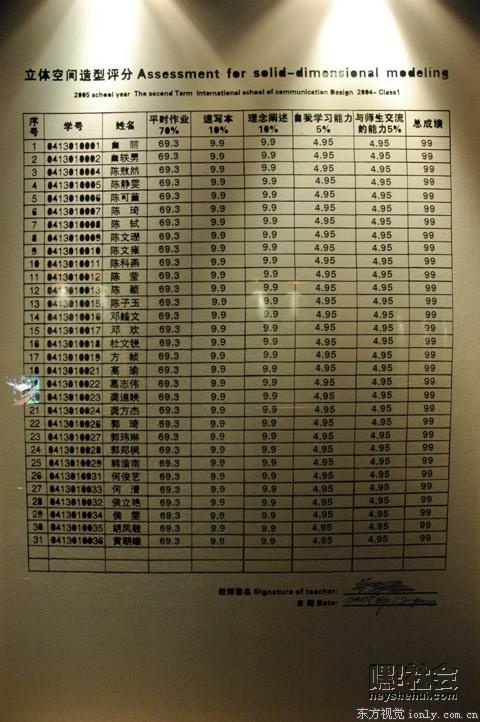 立体空间造型评分 Assessment for solid-dimensional modeling
2005 school year The second Term International school of communication Design 2004- Class1
序号 学号 姓名 平时作业 70% 速写本 10% 理念阐述 10% 自我学习能力 5% 与师生交流的能力5% 总成绩
1 0413010001 白 丽 69.3 9.9 9.9 4.95 4.95 99
2 0413010002 白轶男 69.3 9.9 9.9 4.95 4.95 99
3 0413010004 陈敖然 69.3 9.9 9.9 4.95 4.95 99
4 0413010005 陈静雯 69.3 9.9 9.9 4.95 4.95 99
5 0413010006 陈可 69.3 9.9 9.9 4.95 4.95 99
6 0413010007 陈 琦 69.3 9.9 9.9 4.95 4.95 99
7 0413010008 陈 轼 69.3 9.9 9.9 4.95 4.95 99
8 0413010009 陈文珊 69.3 9.9 9.9 4.95 4.95 99
9 0413010010 陈文雍 69.3 9.9 9.9 4.95 4.95 99
10 0413010011 陈科燕 69.3 9.9 9.9 4.95 4.95 99
11 0413010012 陈 莹 69.3 9.9 9.9 4.95 4.95 99
12 0413010013 陈 颖 69.3 9.9 9.9 4.95 4.95 99
13 0413010015 陈子玉 69.3 9.9 9.9 4.95 4.95 99
14 0413010016 邓皓文 69.3 9.9 9.9 4.95 4.95 99
15 0413010017 邓 欢 69.3 9.9 9.9 4.95 4.95 99
16 0413010018 杜文锐 69.3 9.9 9.9 4.95 4.95 99
17 0413010019 方 帧 69.3 9.9 9.9 4.95 4.95 99
18 0413010021 高 瑜 69.3 9.9 9.9 4.95 4.95 99
0413010022 葛志伟 69.3 9.9 9.9 4.95 4.95 99
0413010023 龚迪映 69.3 9.9 9.9 4.95 4.95 99
21 0413010024 龚方杰 69.3 9.9 9.9 4.95 4.95 99
22 0413010026 郭 琦 69.3 9.9 9.9 4.95 4.95 99
23 0413010027 郭玮琳 69.3 9.9 9.9 4.95 4.95 99
24 0413010028 郭郑枫 69.3 9.9 9.9 4.95 4.95 99
25 0413010029 韩浩南 69.3 9.9 9.9 4.95 4.95 99
26 0413010031 何俊艺 69.3 9.9 9.9 4.95 4.95 99
27 0413010033 何 清 69.3 9.9 9.9 4.95 4.95 99
28 0413010032 侯立艳 69.3 9.9 9.9 4.95 4.95 99
29 0413010034 侯 雯 69.3 9.9 9.9 4.95 4.95 99
30 0413010035 胡凤敏 69.3 9.9 9.9 4.95 4.95 99
31 0413010036 黄朝曦 69.3 9.9 9.9 4.95 4.95 99
教师签名 Signature of teacher:
日 期 Date:
嘿!社会
heyshehui.com
东方视觉 ionly.com.cn